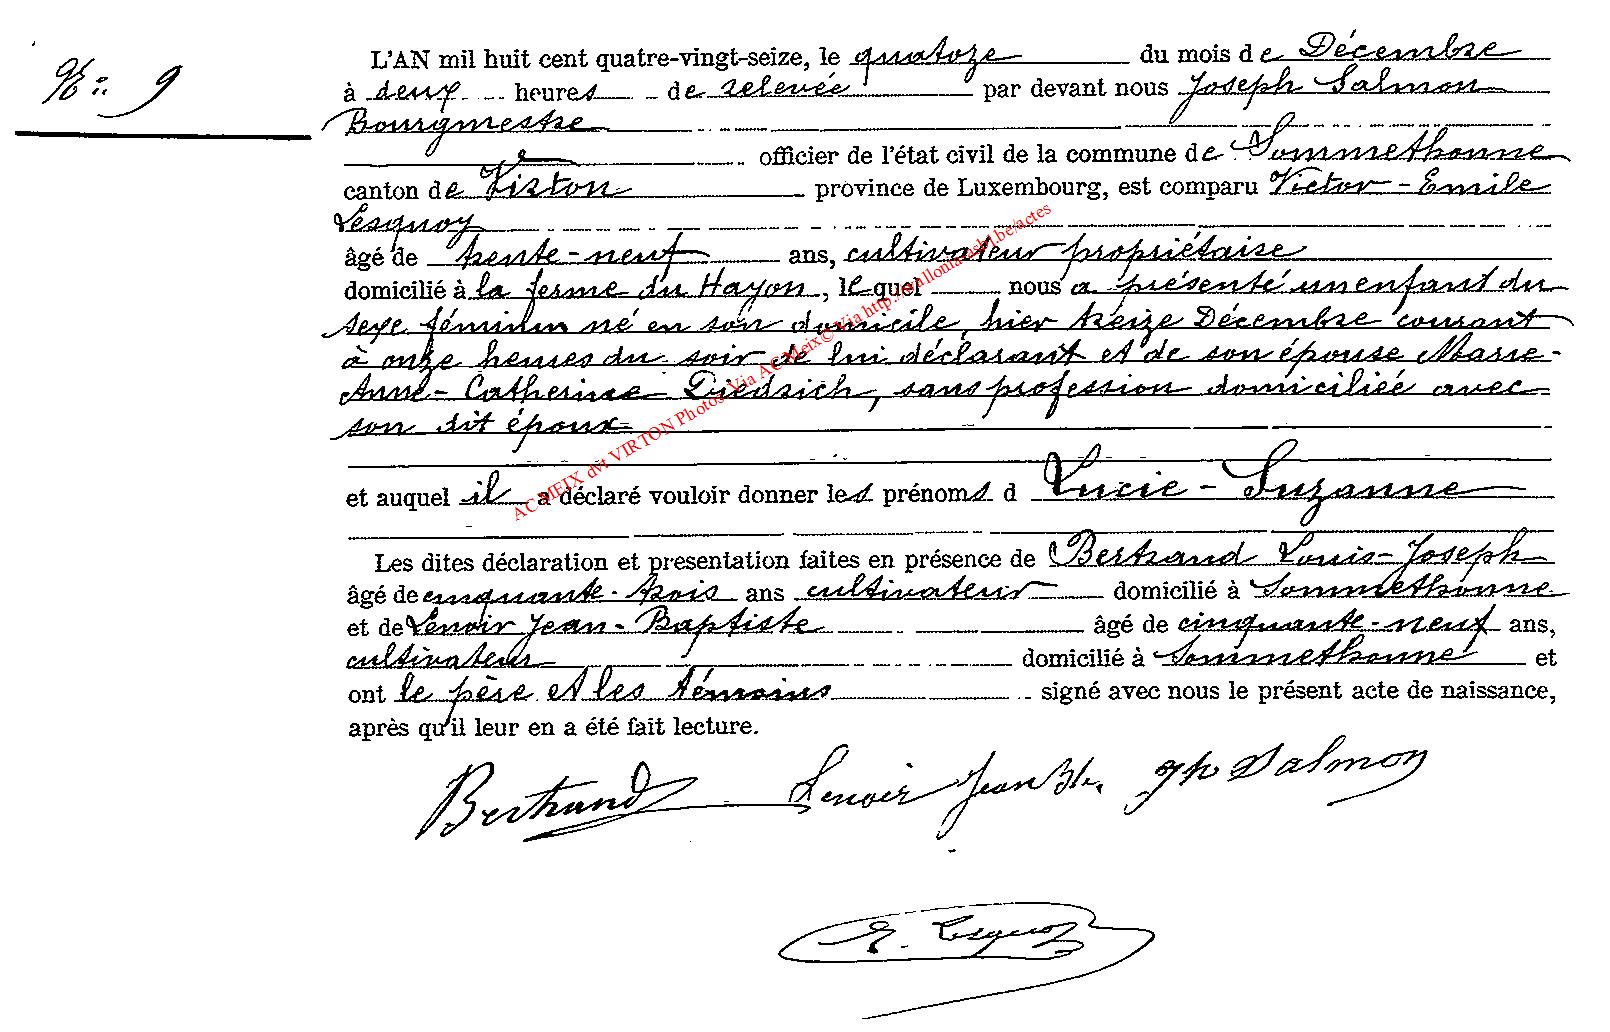 N° 9
L'AN mil huit cent quatre-vingt-seize, le quatoze du mois de Décembre
à deux heures de relevée par devant nous Joseph Salmon
Bourgmestre
officier de l'état civil de la commune de Sommethonne
canton de Virton province de Luxembourg, est comparu Victor-Emile
Lesquoy
âgé de trente-neuf ans, cultivateur propriétaire
domicilié à la ferme du Hayon, lequel nous a présenté un enfant du
sexe féminin né en son domicile, hier treize Décembre courant
à onze heures du soir de lui déclarant et de son épouse Marie-
Anne-Catherine Diedrich, sans profession domiciliée avec
son dit époux
et auquel il a déclaré vouloir donner les prénoms d Lucie-Suzanne
Les dites déclaration et presentation faites en présence de Bertrand Louis-Joseph
âgé de cinquante-trois ans cultivateur domicilié à Sommethonne
et de Lenoir Jean-Baptiste âgé de cinquante-neuf ans,
cultivateur domicilié à Sommethonne et
ont le père et les témoins signé avec nous le présent acte de naissance,
après qu'il leur en a été fait lecture.
Bertrand Lenoir Jean Bte. Jph Salmon
E. Lesquoy
AC MEIX dvt VIRTON Photos Via AC Meix© Via http://wallonia-asbl.be/actes